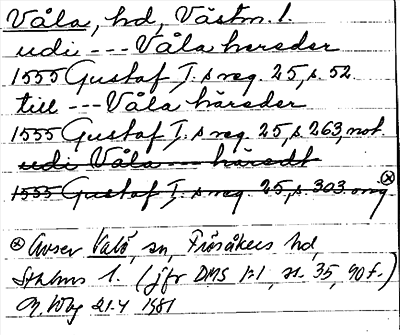 Våla, hd, Västm. l.
udi --- Våla hersder
1555 Gustaf I:s reg. 25, s. 52.
till --- Våla härsder
1555 Gustaf I:s reg. 25, s. 263, not.
udi Våla --- häredt
1555 Gustaf I:s reg. 25, s. 303. orig. ⊗
⊗ Avser Valö, sn, Frösåkers hd,
Sthlms l. (jfr DMS 1:1, s. 35, 90 f.)
21.4 1981